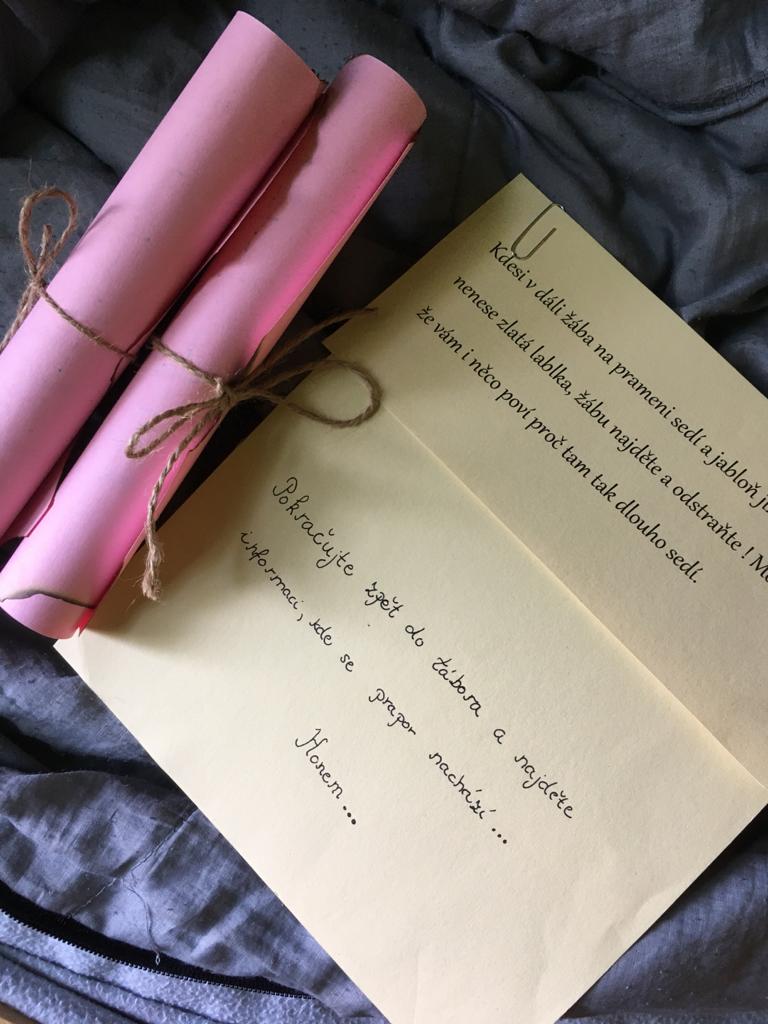 Kdesi v dáli žába na prameni sedí a jabloň
nenese zlatá lablka, žábu najděte a odstraňte !
že vám i něco poví proč tam tak dlouho sedí.
Pokračujte zpět do tábora a najděte
informaci, kde se prapor nachází...
Honem...